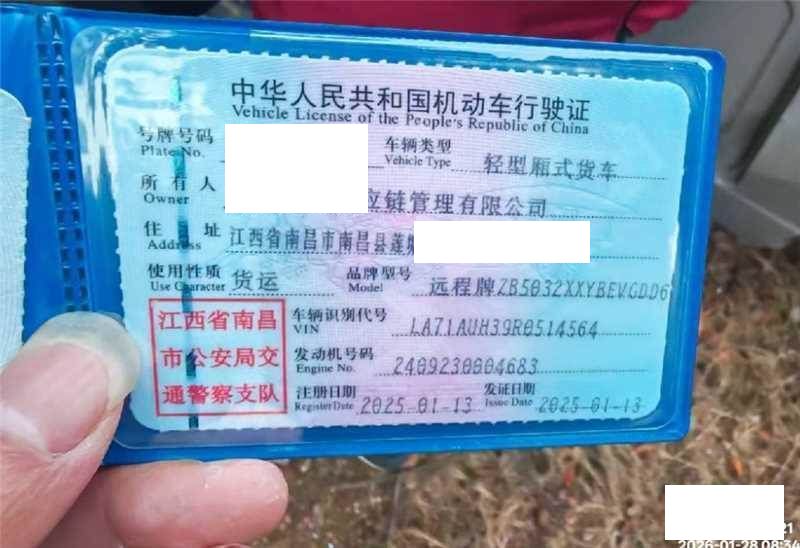 中华人民共和国机动车行驶证
Vehicle License of the People's Republic of China
号牌号码
Plate No.
车辆类型 轻型厢式货车
Vehicle Type
所有人 应链管理有限公司
Owner
住址 江西省南昌市南昌县莲
Address
使用性质 货运
Use Character
品牌型号 远程牌ZB5032XXYBEVGDD6
Model
江西省南昌
市公安局交
通警察支队
车辆识别代号 LA71AUH39R0514564
VIN
发动机号码 2409230004683
Engine No.
注册日期 2025-01-13
Register Date
发证日期 2025-01-13
Issue Date
21
2026-01-28 08:34